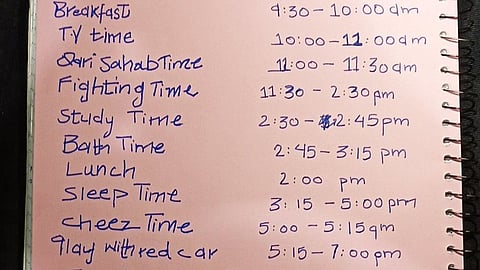 Breakfast 9:30 - 10:00 am
T.V time 10:00 - 11:00am
Qari Sahab Time 11:00 - 11:30am
Fighting Time 11:30 - 2:30pm
Study Time 2:30 - 2:45pm
Bath Time 2:45 - 3:15 pm
Lunch 2:00 pm
Sleep Time 3:15 - 5:00pm
Cheez Time 5:00 - 5:15am
Play with red car 5:15 - 7:00pm